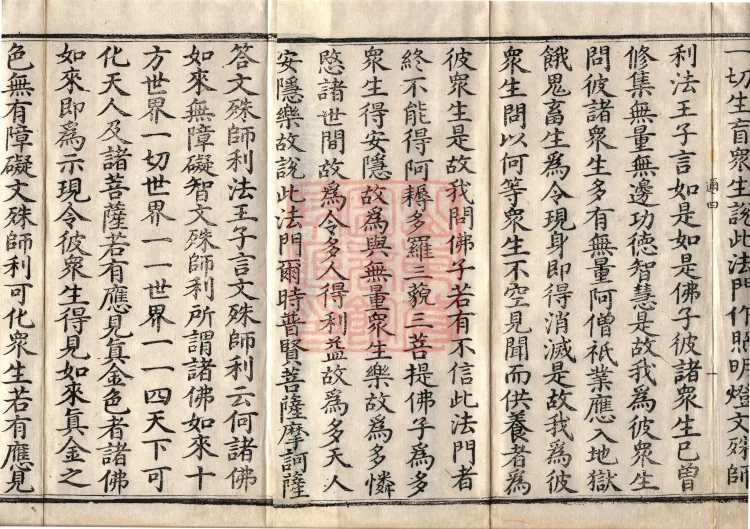 一切生盲衆生說此法門作照明燈文殊師
利法王子言如是如是佛子彼諸衆生已曾
修集無量無邊功德智慧是故我爲彼衆生
問彼諸衆生多有無量阿僧祇業應入地獄
餓鬼畜生爲令現身即得消滅是故我爲彼
衆生問以何等衆生不空見聞而供養者爲
彼衆生是故我問佛子若有不信此法門者
終不能得阿耨多羅三藐三菩提佛子爲多
衆生得安隱故爲與無量衆生樂故爲多憐
愍諸世間故爲令多人得利益故爲多天人
安隱樂故說此法門爾時普賢菩薩摩訶薩
答文殊師利法王子言文殊師利云何諸佛
如來無障礙智文殊師利所謂諸佛如來十
方世界一切世界一一世界一一四天下可
化天人及諸菩薩若有應見眞金色者諸佛
如來即爲示現令彼衆生得見如來眞金之
色無有障礙文殊師利可化衆生若有應見